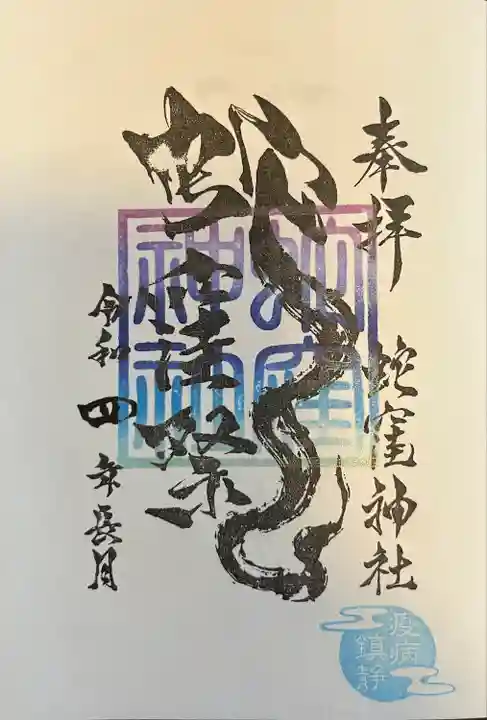 奉拝 蛇窪神社
蛇窪祭
蛇窪神社
令和四年長月
疫病
鎮静